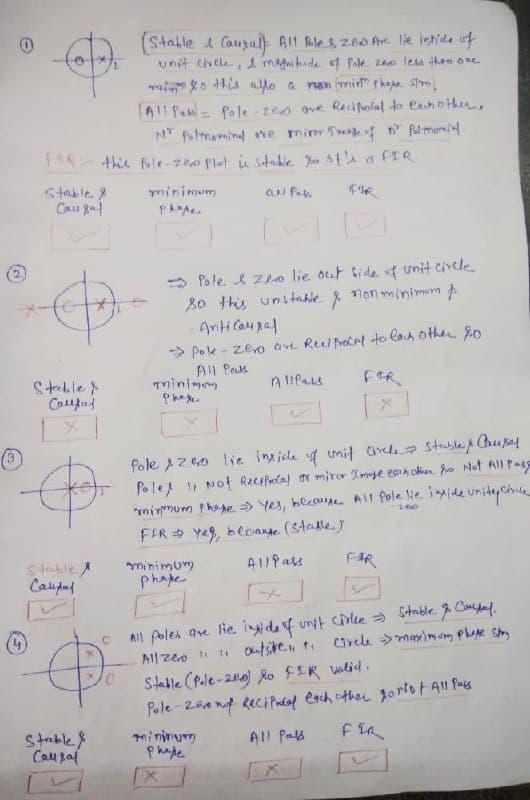 ①
(Stable & Causal): All Poles zero Are lie inside of
unit circle, & magnitude of Pole zero less than one
so this also a min^m phase s/m.
All Pass = Pole-zero are Reciprocal to each other,
N^r Polynominal are miror Image of D^r Polynomial.
FIR:- this Pole-zero plot is stable so it's a FIR
Stable & Causal ✓
minimum phase ✓
All Pass ✓
FIR ✓
②
⇒ Pole & zero lie out side of unit circle
so this unstable & non minimum
Anti Causal
⇒ Pole-zero are Reciprocal to each other so
All Pass
Stable & Causal ×
minimum phase ×
All Pass ✓
FIR ×
③
Pole & zero lie inside of unit circle ⇒ Stable & Causal
Poles is NOT Reciprocal or miror Image each other so Not All Pass
minimum phase ⇒ Yes, because All Pole zero lie inside unity circle
FIR ⇒ Yes, because (Stable)
Stable & Causal ✓
minimum phase ✓
All Pass ×
FIR ✓
④
All Poles are lie inside of unit circle ⇒ Stable & Causal.
All zero " " outside " " circle ⇒ maximum phase s/m
Stable (Pole-zero) so FIR valid.
Pole-zero not Reciprocal each other so not All Pass
Stable & Causal ✓
minimum phase ×
All Pass ×
FIR ✓